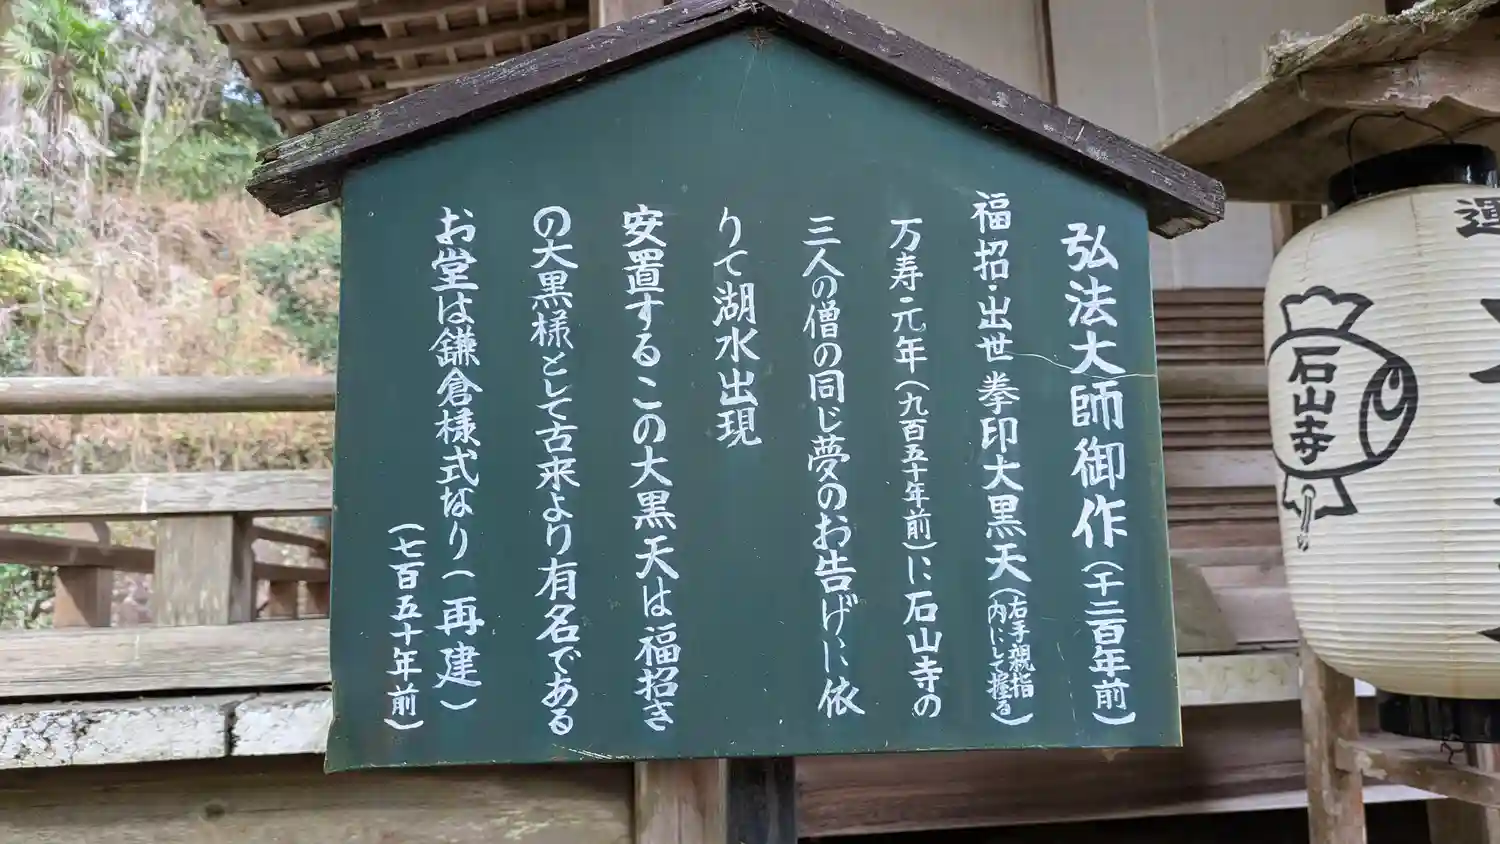 弘法大師御作(千二百年前)
福招・出世拳印大黒天(右手親指内にして握る)
万寿元年(九百五十年前)に石山寺の
三人の僧の同じ夢のお告げに依
りて湖水出現
安置するこの大黒天は福招き
の大黒様として古来より有名である
お堂は鎌倉様式なり(再建)
(七百五十年前)
石山寺
運